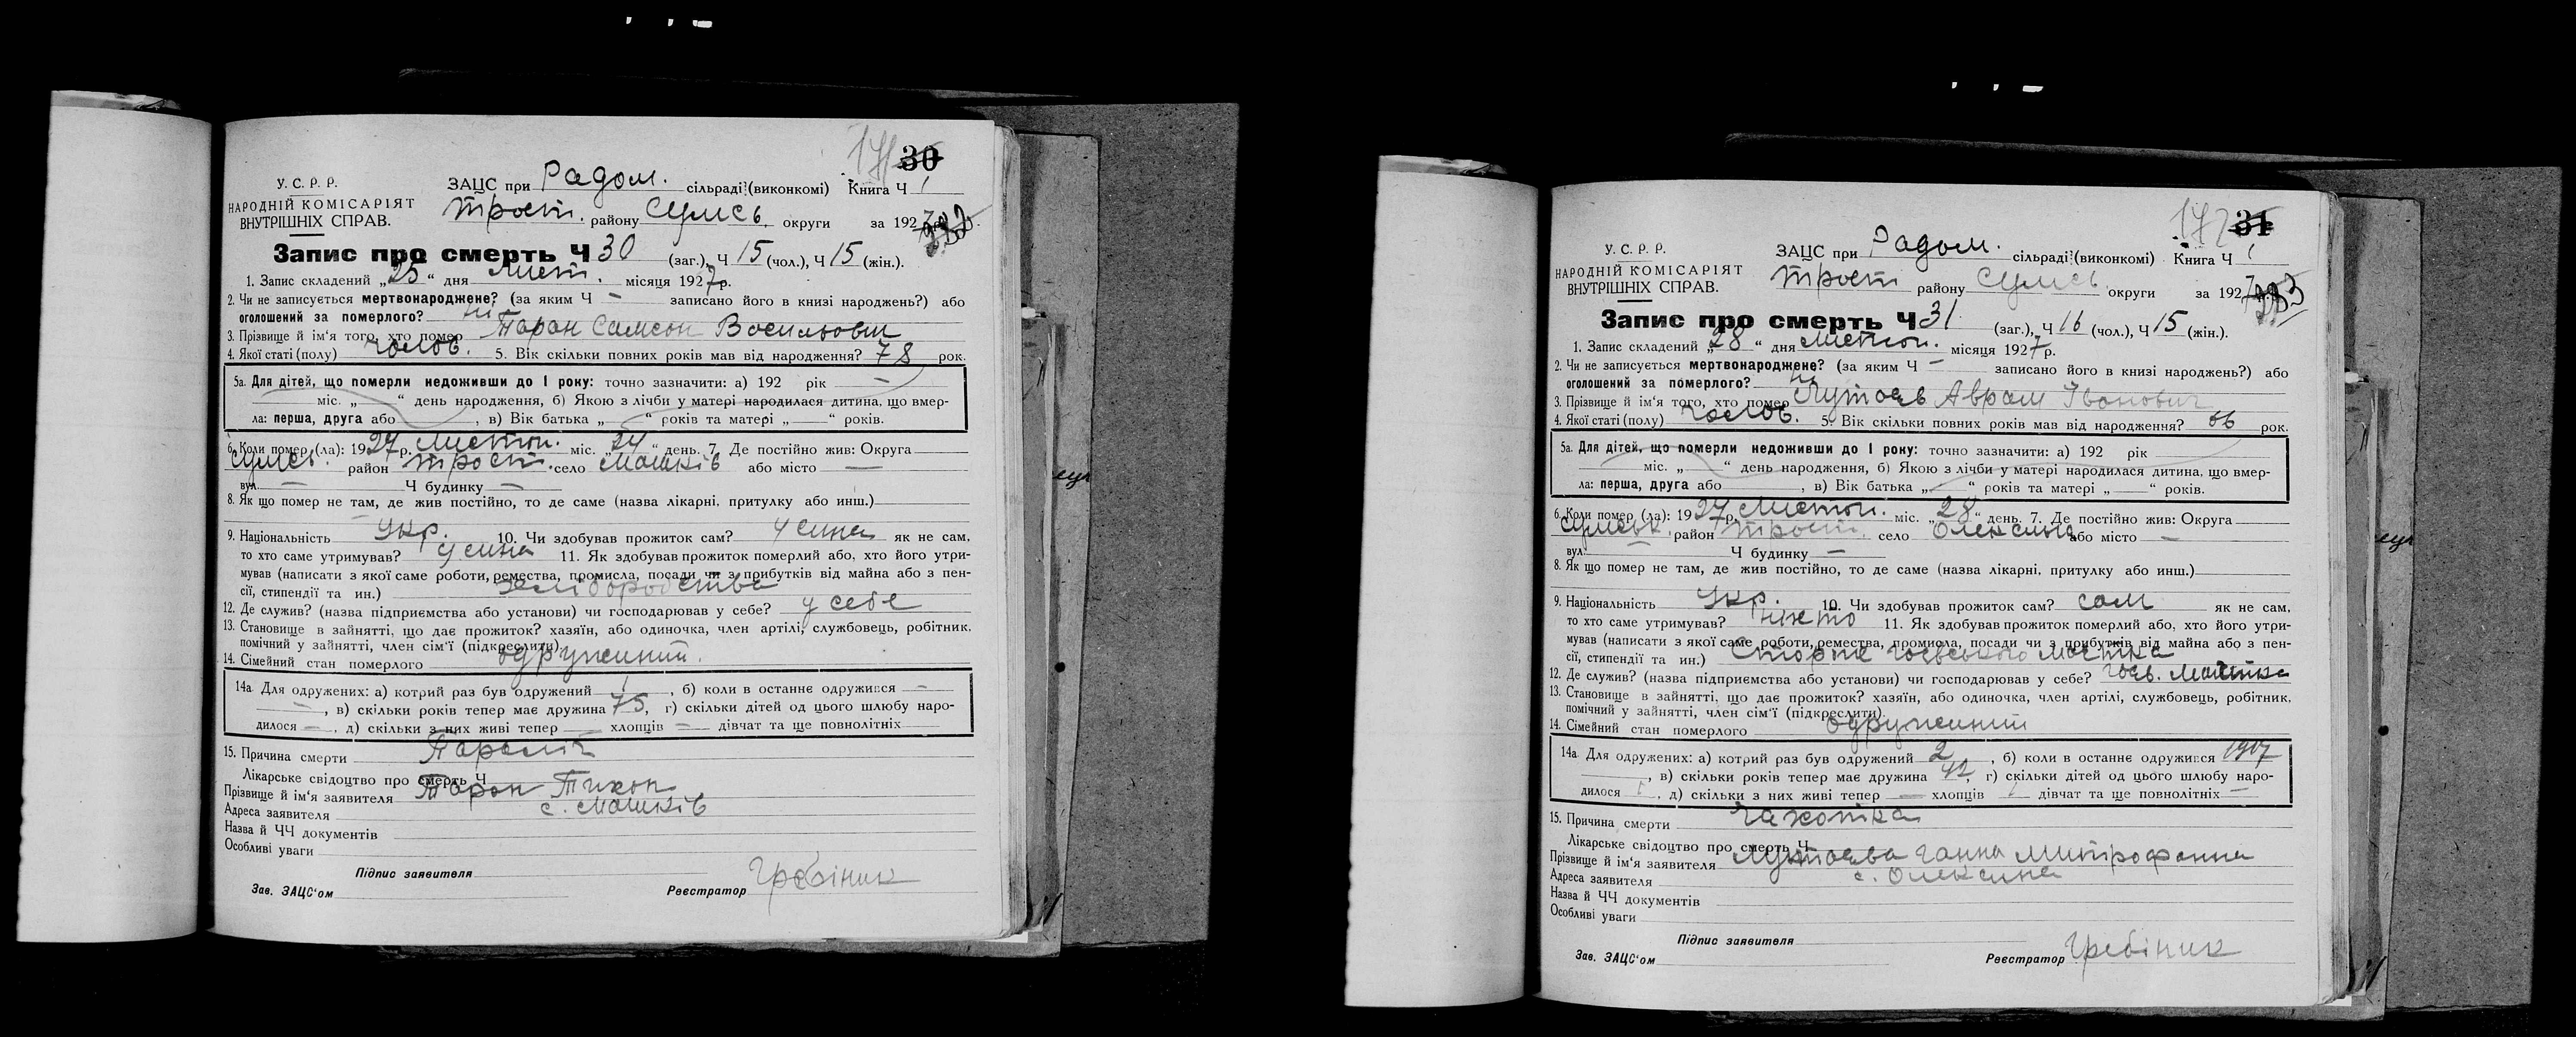 171 30
У. С. Р. Р.
НАРОДНІЙ КОМІСАРІЯТ
ВНУТРІШНІХ СПРАВ.
ЗАЦС при Радом. сільраді (виконкомі) Книга Ч 1
Трост. району Сумсь. округи за 1927 р.
Запис про смерть Ч 30 (заг.), Ч 15 (чол.), Ч 15 (жін.).
1. Запис складений „25“ дня Лист. місяця 1927 р.
2. Чи не записується мертвонароджене? (за яким Ч — записано його в книзі народжень?) або
оголошений за померлого? ні
3. Прізвище й ім'я того, хто помер Таран Самсон Васильович
4. Якої статі (полу) чолов. 5. Вік скільки повних років мав від народження? 78 рок.
5а. Для дітей, що померли недоживши до 1 року: точно зазначити: а) 192 рік —
міс. „ “ день народження, б) Якою з лічби у матері народилася дитина, що вмер-
ла: перша, друга або , в) Вік батька „ “ років та матері „ “ років.
6. Коли помер (ла): 1927 р. Листоп. міс. „24“ день. 7. Де постійно жив: Округа
Сумсь. район Трост. село Машків або місто —
вул. — Ч будинку —
8. Як що помер не там, де жив постійно, то де саме (назва лікарні, притулку або инш.)
9. Національність Укр. 10. Чи здобував прожиток сам? У сина як не сам,
то хто саме утримував? У сина 11. Як здобував прожиток померлий або, хто його утри-
мував (написати з якої саме роботи, ремества, промисла, посади чи з прибутків від майна або з пен-
сії, стипендії та ин.)
12. Де служив? (назва підприємства або установи) чи господарював у себе? у себе
13. Становище в зайнятті, що дає прожиток? хазяїн, або одиночка, член артілі, службовець, робітник,
помічний у зайнятті, член сім'ї (підкреслити)
14. Сімейний стан померлого одружений.
14а. Для одружених: а) котрий раз був одружений 1, б) коли в останнє одружився —
—, в) скільки років тепер має дружина 75, г) скільки дітей од цього шлюбу наро-
дилося —, д) скільки з них живі тепер — хлопців — дівчат та ще повнолітніх
15. Причина смерти Параліч
Лікарське свідоцтво про смерть Ч
Прізвище й ім'я заявителя Таран Тихон
Адреса заявителя с. Машків
Назва й ЧЧ документів
Особливі уваги
Підпис заявителя
Зав. ЗАЦС'ом Реєстратор Гребіник
172 31
У. С. Р. Р.
НАРОДНІЙ КОМІСАРІЯТ
ВНУТРІШНІХ СПРАВ.
ЗАЦС при Радом. сільраді (виконкомі) Книга Ч 1
Трост району Сумсь. округи за 1927
Запис про смерть Ч 31 (заг.), Ч 16 (чол.), Ч 15 (жін.).
1. Запис складений „28“ дня Листоп. місяця 1927 р.
2. Чи не записується мертвонароджене? (за яким Ч — записано його в книзі народжень?) або
оголошений за померлого? ні
3. Прізвище й ім'я того, хто помер Аврам Іванович
4. Якої статі (полу) чолов. 5. Вік скільки повних років мав від народження? 66 рок.
5а. Для дітей, що померли недоживши до 1 року: точно зазначити: а) 192 рік
міс. „ “ день народження, б) Якою з лічби у матері народилася дитина, що вмер-
ла: перша, друга або , в) Вік батька „ “ років та матері „ “ років.
6. Коли помер (ла): 1927 р. Листоп. міс. „28“ день. 7. Де постійно жив: Округа
Сумськ. район Трост. село Олексина або місто —
вул. — Ч будинку —
8. Як що помер не там, де жив постійно, то де саме (назва лікарні, притулку або инш.)
9. Національність Укр. 10. Чи здобував прожиток сам? сам як не сам,
то хто саме утримував? ніхто 11. Як здобував прожиток померлий або, хто його утри-
мував (написати з якої саме роботи, ремества, промисла, посади чи з прибутків від майна або з пен-
сії, стипендії та ин.) Сторож
12. Де служив? (назва підприємства або установи) чи господарював у себе?
13. Становище в зайнятті, що дає прожиток? хазяїн, або одиночка, член артілі, службовець, робітник,
помічний у зайнятті, член сім'ї (підкреслити)
14. Сімейний стан померлого одружений
14а. Для одружених: а) котрий раз був одружений 2, б) коли в останнє одружився 1907
, в) скільки років тепер має дружина 42, г) скільки дітей од цього шлюбу наро-
дилося 1, д) скільки з них живі тепер — хлопців 1 дівчат та ще повнолітніх —
15. Причина смерти чахотка
Лікарське свідоцтво про смерть Ч
Прізвище й ім'я заявителя Ганна Митрофанна
Адреса заявителя с. Олексина
Назва й ЧЧ документів
Особливі уваги
Підпис заявителя
Зав. ЗАЦС'ом Реєстратор Гребіник